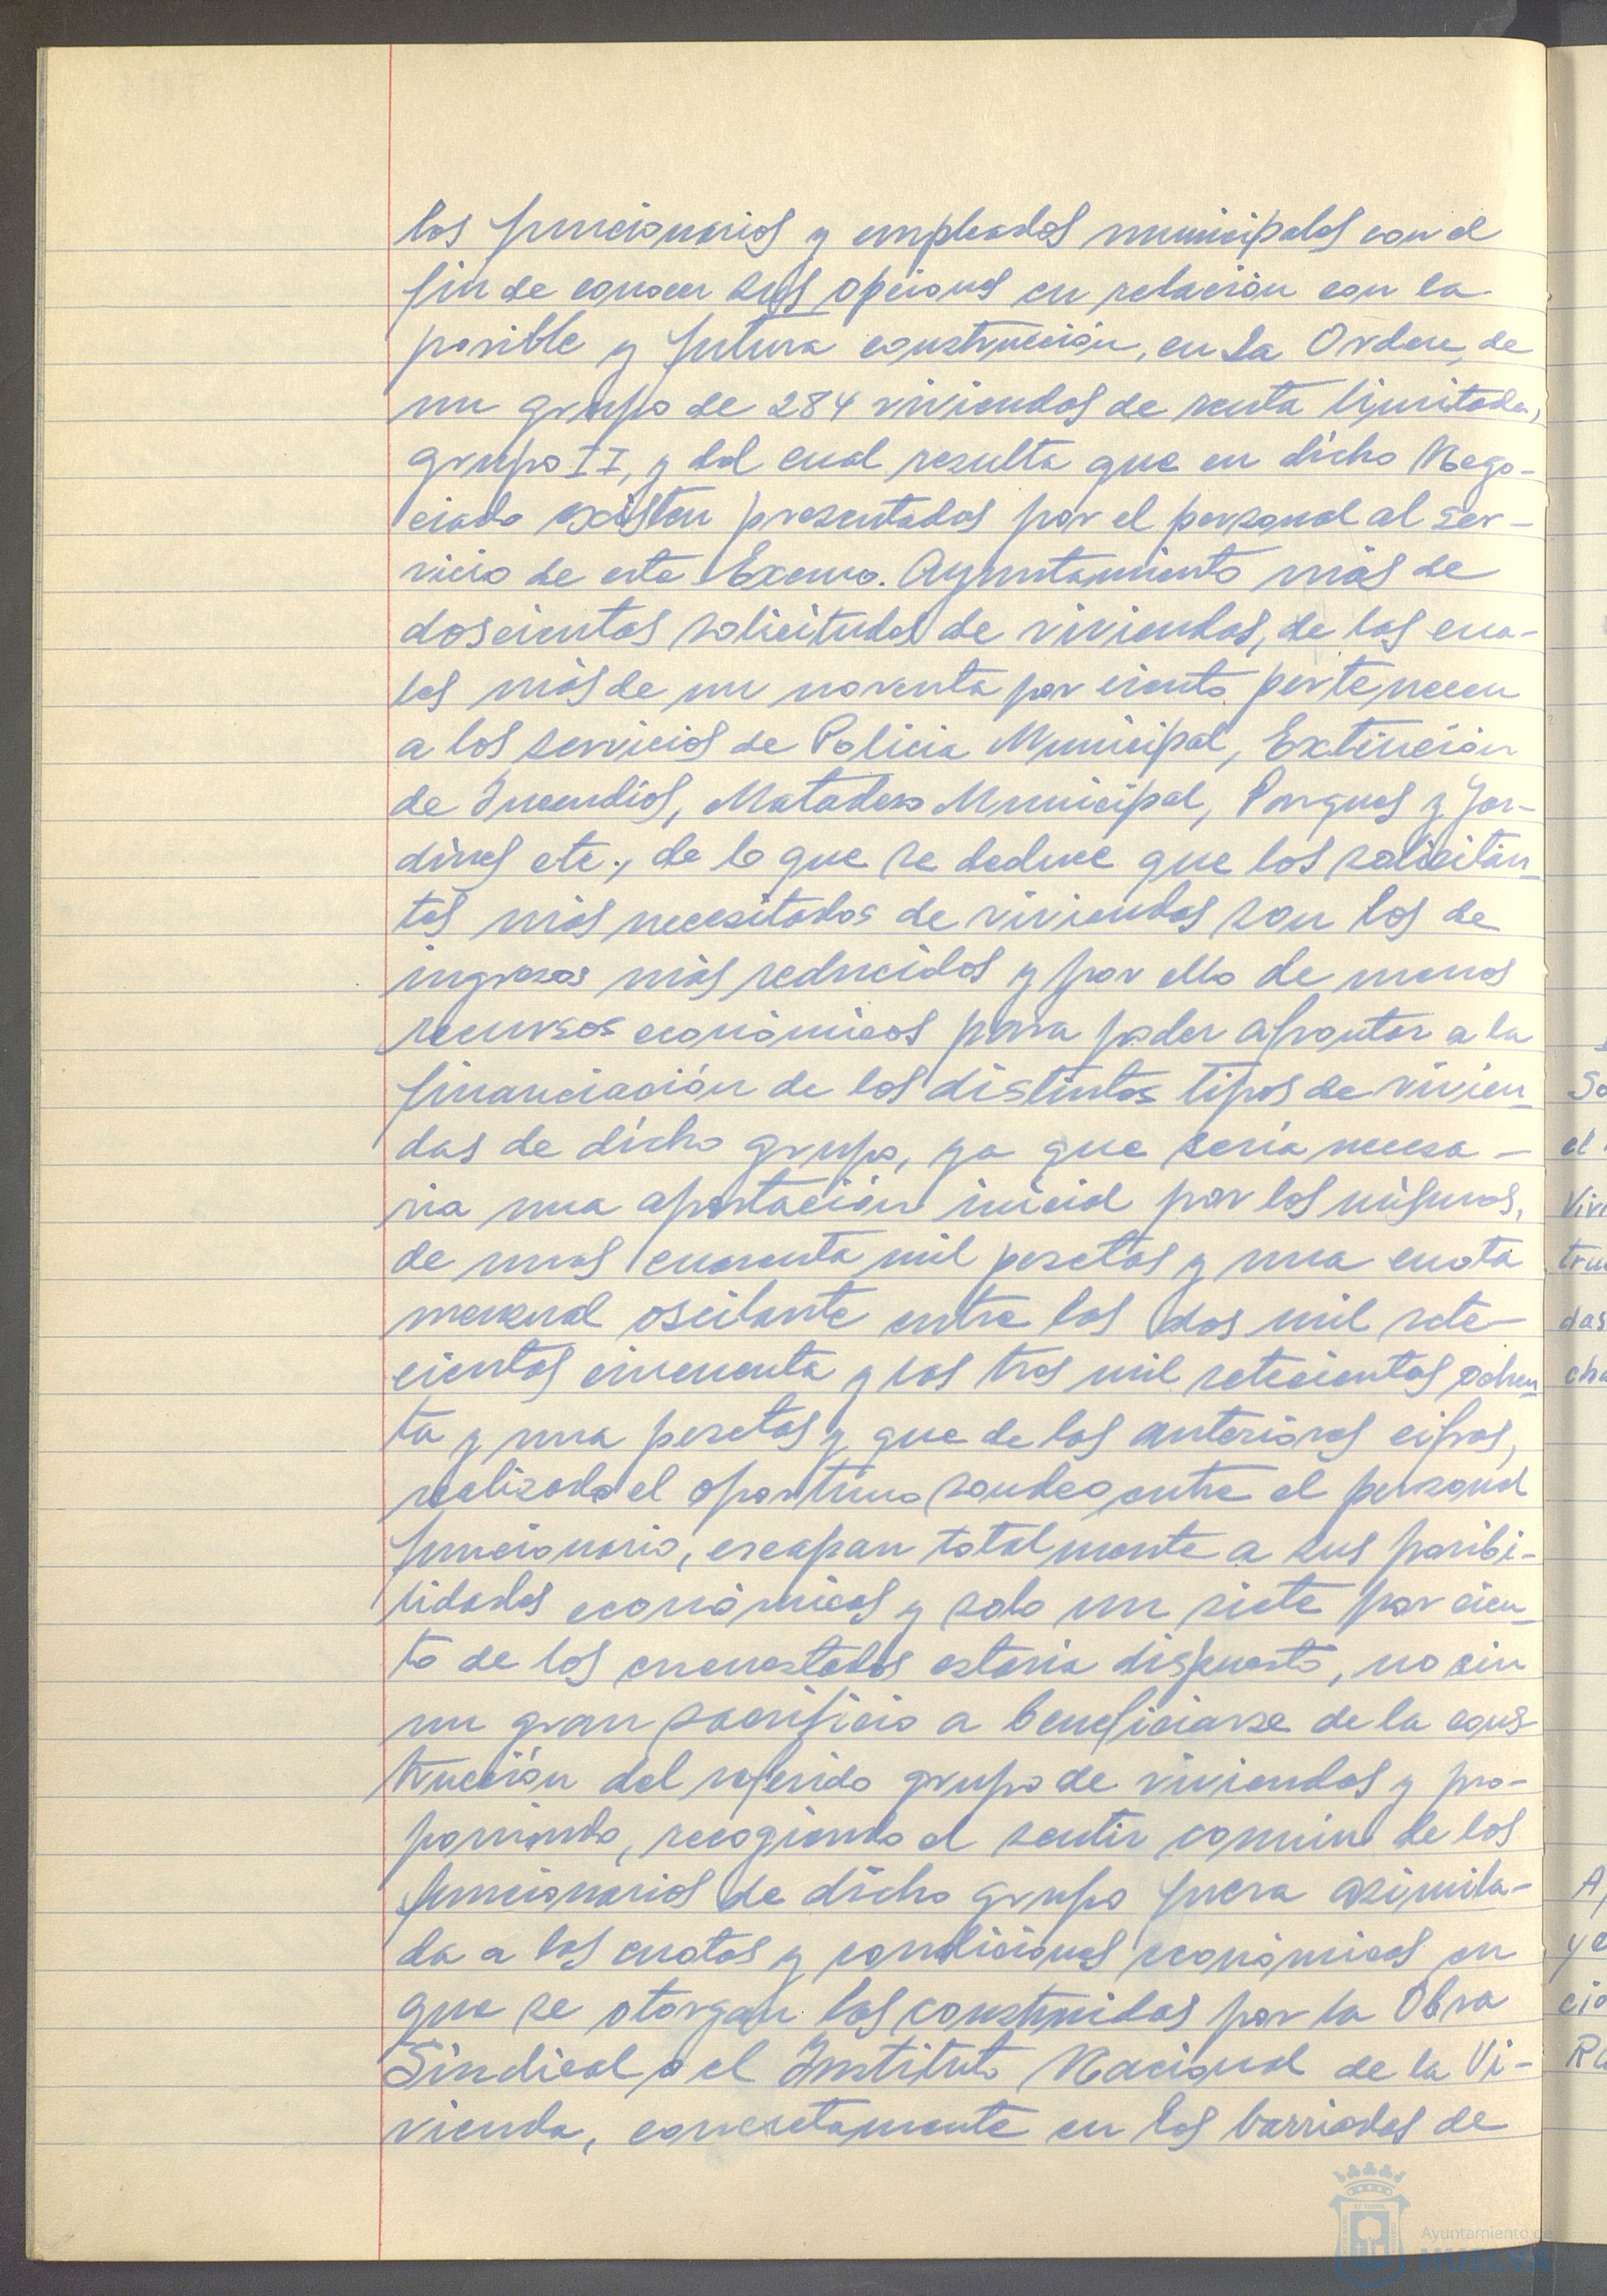 los funcionarios y empleados municipales con el
fin de conocer sus opciones en relación con la
posible y futura construcción, en La Orden, de
un grupo de 284 viviendas de renta limitada,
grupo II, y del cual resulta que en dicho Nego-
ciado existen presentadas por el personal al ser-
vicio de este Excmo. Ayuntamiento más de
doscientas solicitudes de viviendas, de las cua-
les más de un noventa por ciento pertenecen
a los servicios de Policia Municipal, Extinción
de Incendios, Matadero Municipal, Parques y Jar-
dines etc., de lo que se deduce que los solicitan-
tes más necesitados de viviendas son los de
ingresos más reducidos y por ello de menos
recursos económicos para poder afrontar a la
financiación de los distintos tipos de vivien-
das de dicho grupo, ya que sería necesa-
ria una aportación inicial por los mismos,
de unas cuarenta mil pesetas y una cuota
mensual oscilante entre las dos mil sete-
cientas cincuenta y las tres mil setecientas ochen-
ta y una pesetas y que de las anteriores cifras,
realizado el oportuno sondeo entre el personal
funcionario, escapan totalmente a sus posibi-
lidades económicas y solo un siete por cien-
to de los encuestados estaria dispuesto, no sin
un gran sacrificio a beneficiarse de la cons
trucción del referido grupo de viviendas y pro-
poniendo, recogiendo el sentir común de los
funcionarios de dicho grupo fuera asimila-
da a las cuotas y condiciones económicas en
que se otorgan las construidas por la Obra
Sindical o el Instituto Nacional de la Vi-
vienda, concretamente en las barriadas de
Ayuntamiento de
HUELVA